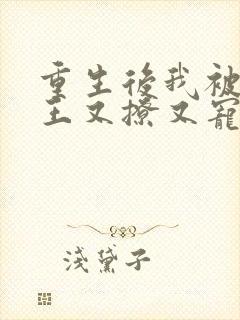 重生後我被
王又撩又寵
淺黛子